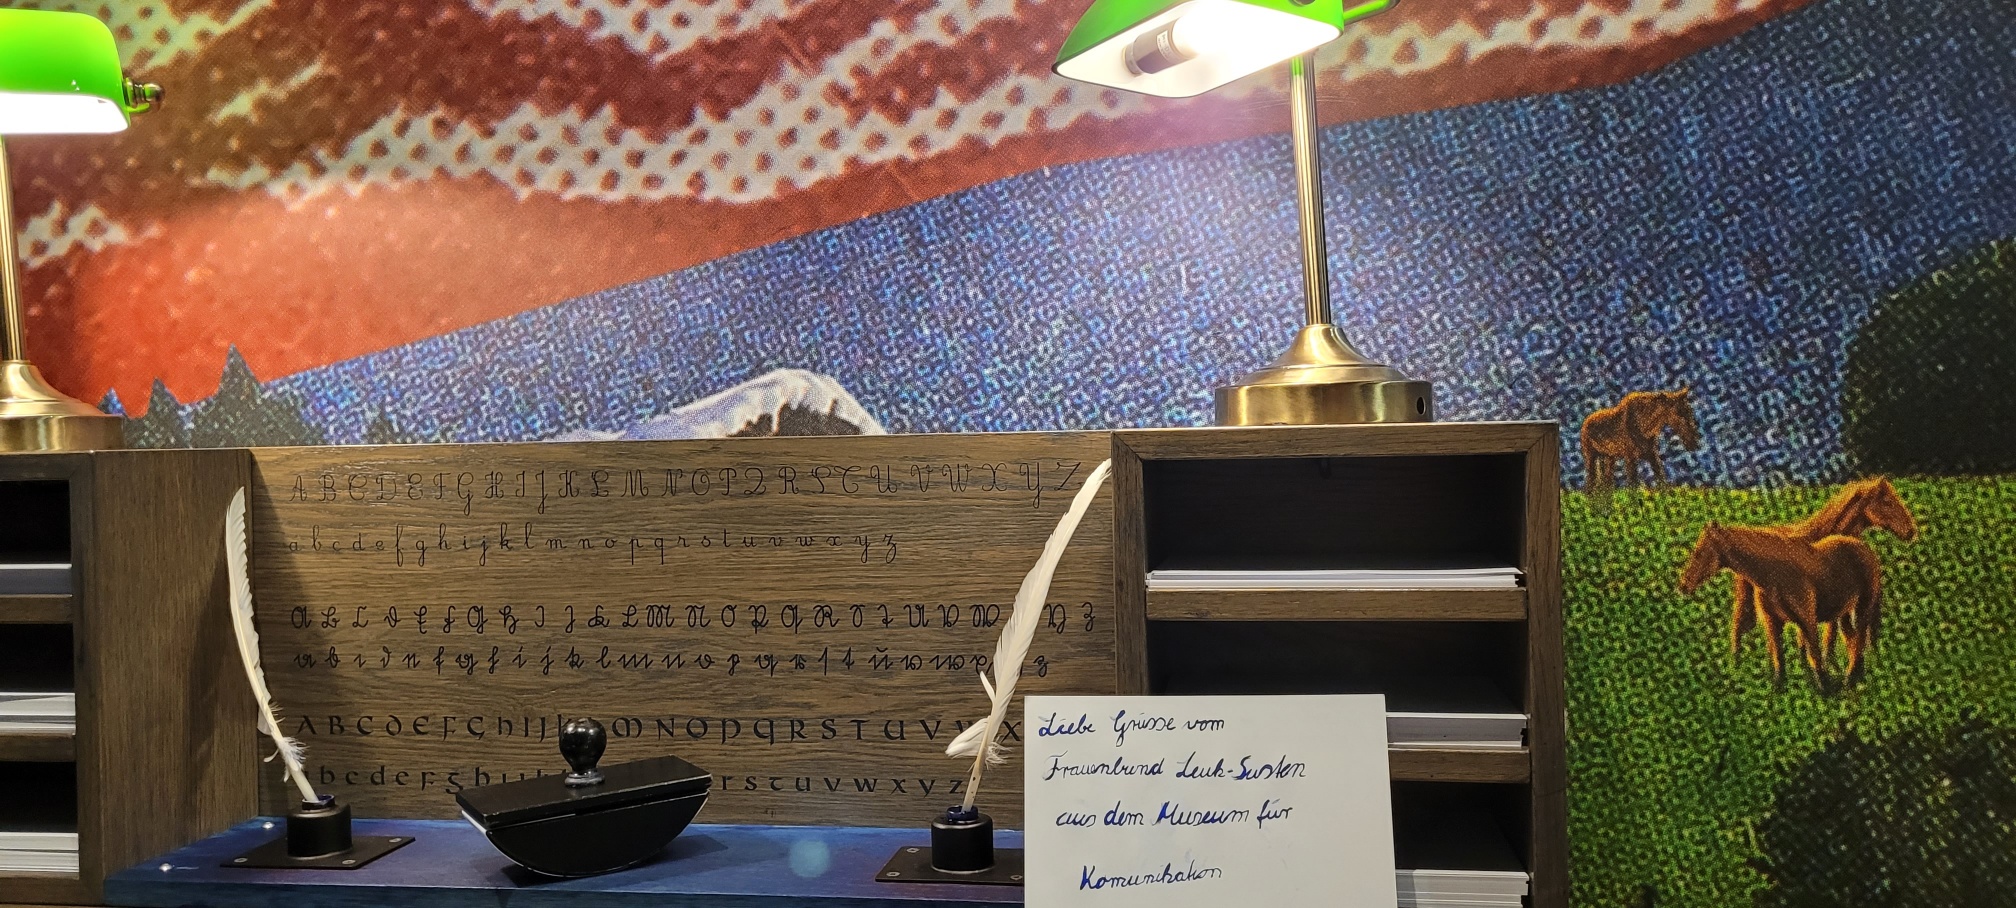 A B C D E F G H I J K L M N O P Q R S T U V W X Y Z
a b c d e f g h i j k l m n o p q r s t u v w x y z
A B C D E F G H I J K L M N O P Q R S T U V W Y Z
a b c d e f g h i j k l m n o p q r s t u v w x z
A B C D E F G H I J K M N O P Q R S T U V W X
b c d e f g h i j k r s t u v w x y z
Liebe Grüsse vom
Frauenbund Leuk-Susten
aus dem Museum für
Komunikation